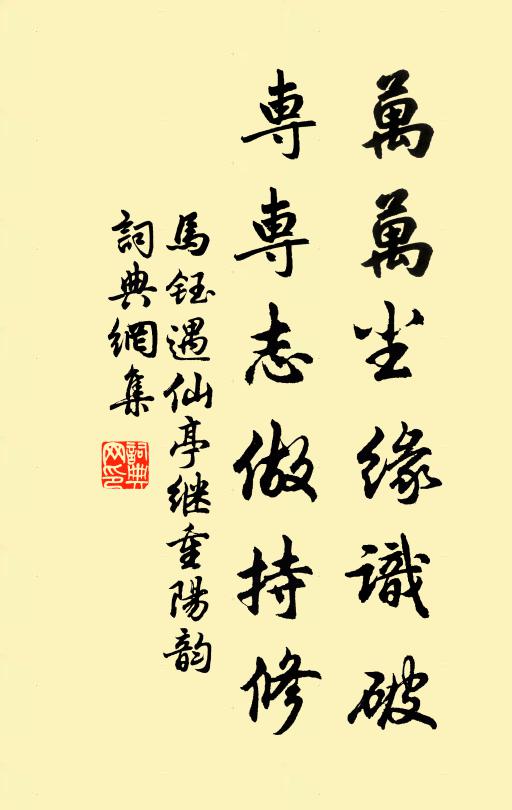 萬萬尘緣識破
専専志做持修
馬鈺遇仙亭继重陽韵
詞典網集
詞典
网印